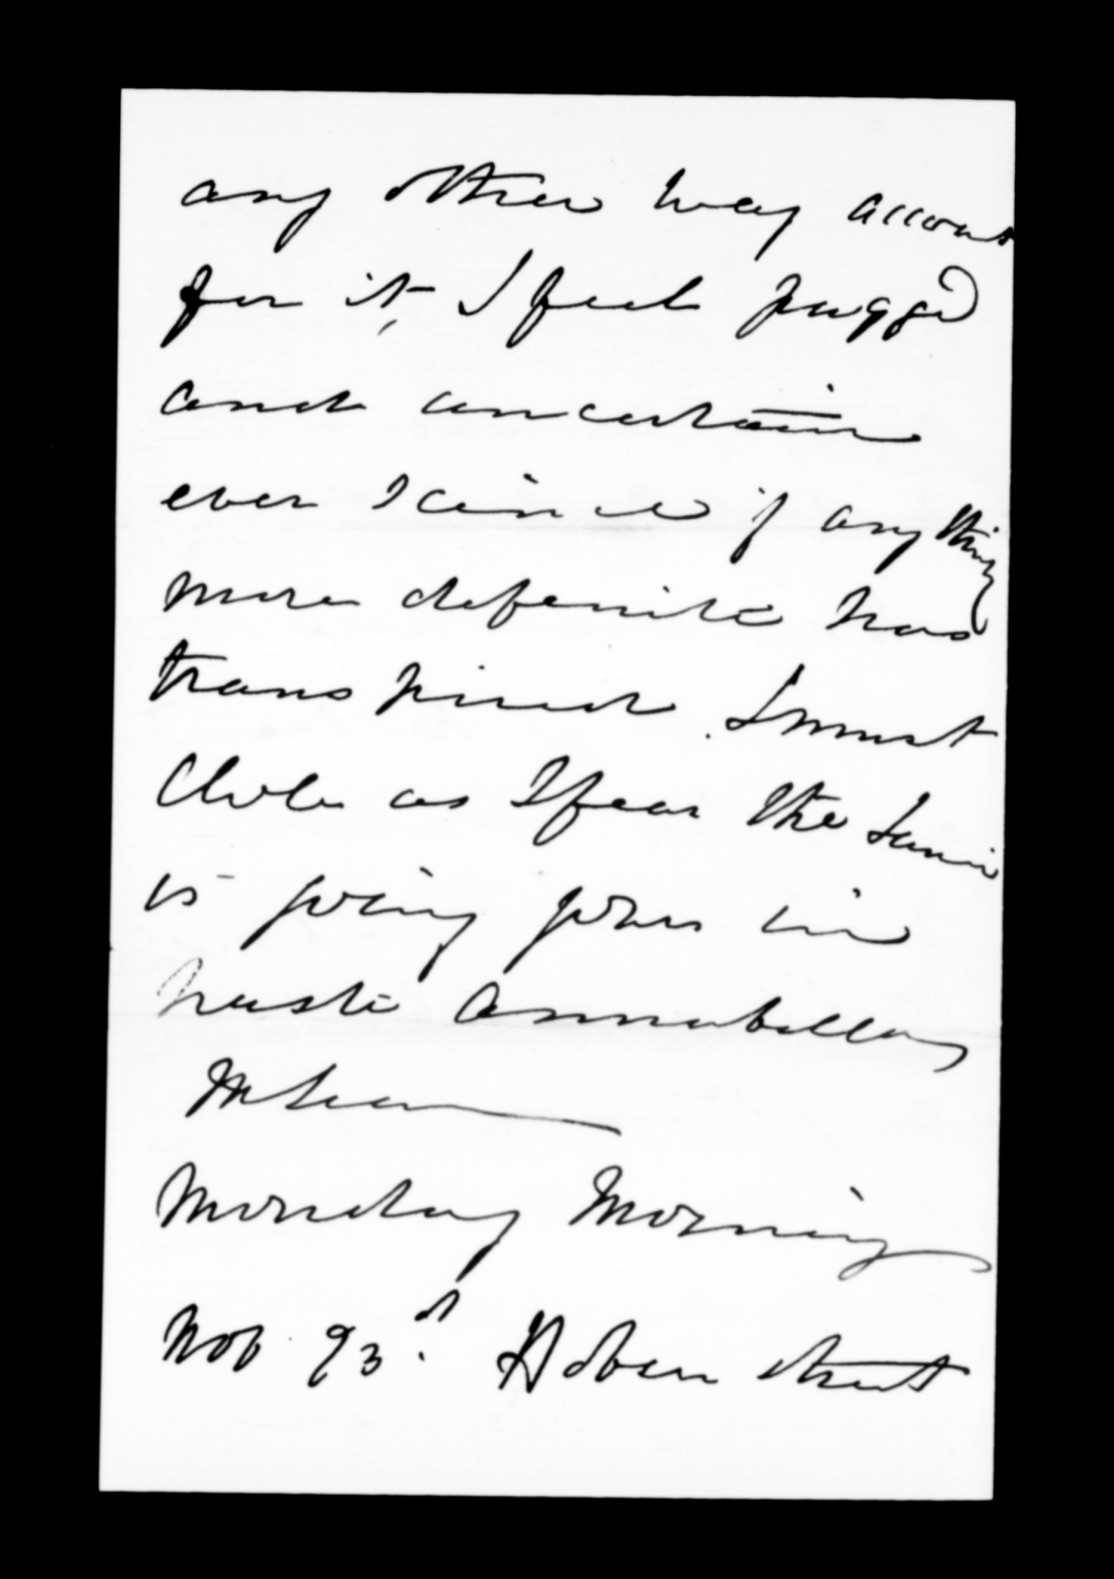 any other way account
for it, I feel fagged
and uncertain
ever since if anything
more definite has
transpired. I must
Close as I fear the Term
is going yours in
haste Annabella
McLean
Monday Morning
Nov 23d. Hobson Street